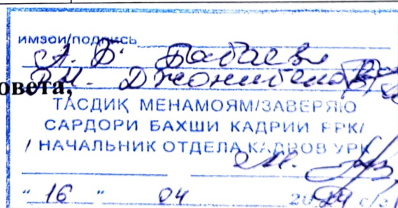 имзои/подпись
А. Б. Бабаев
овета,
ТАСДИҚ МЕНАМОЯМ/ЗАВЕРЯЮ
САРДОРИ БАХШИ КАДРИИ РРК/
/ НАЧАЛЬНИК ОТДЕЛА КАДРОВ УРК
" 16 " 04 2024 с/г